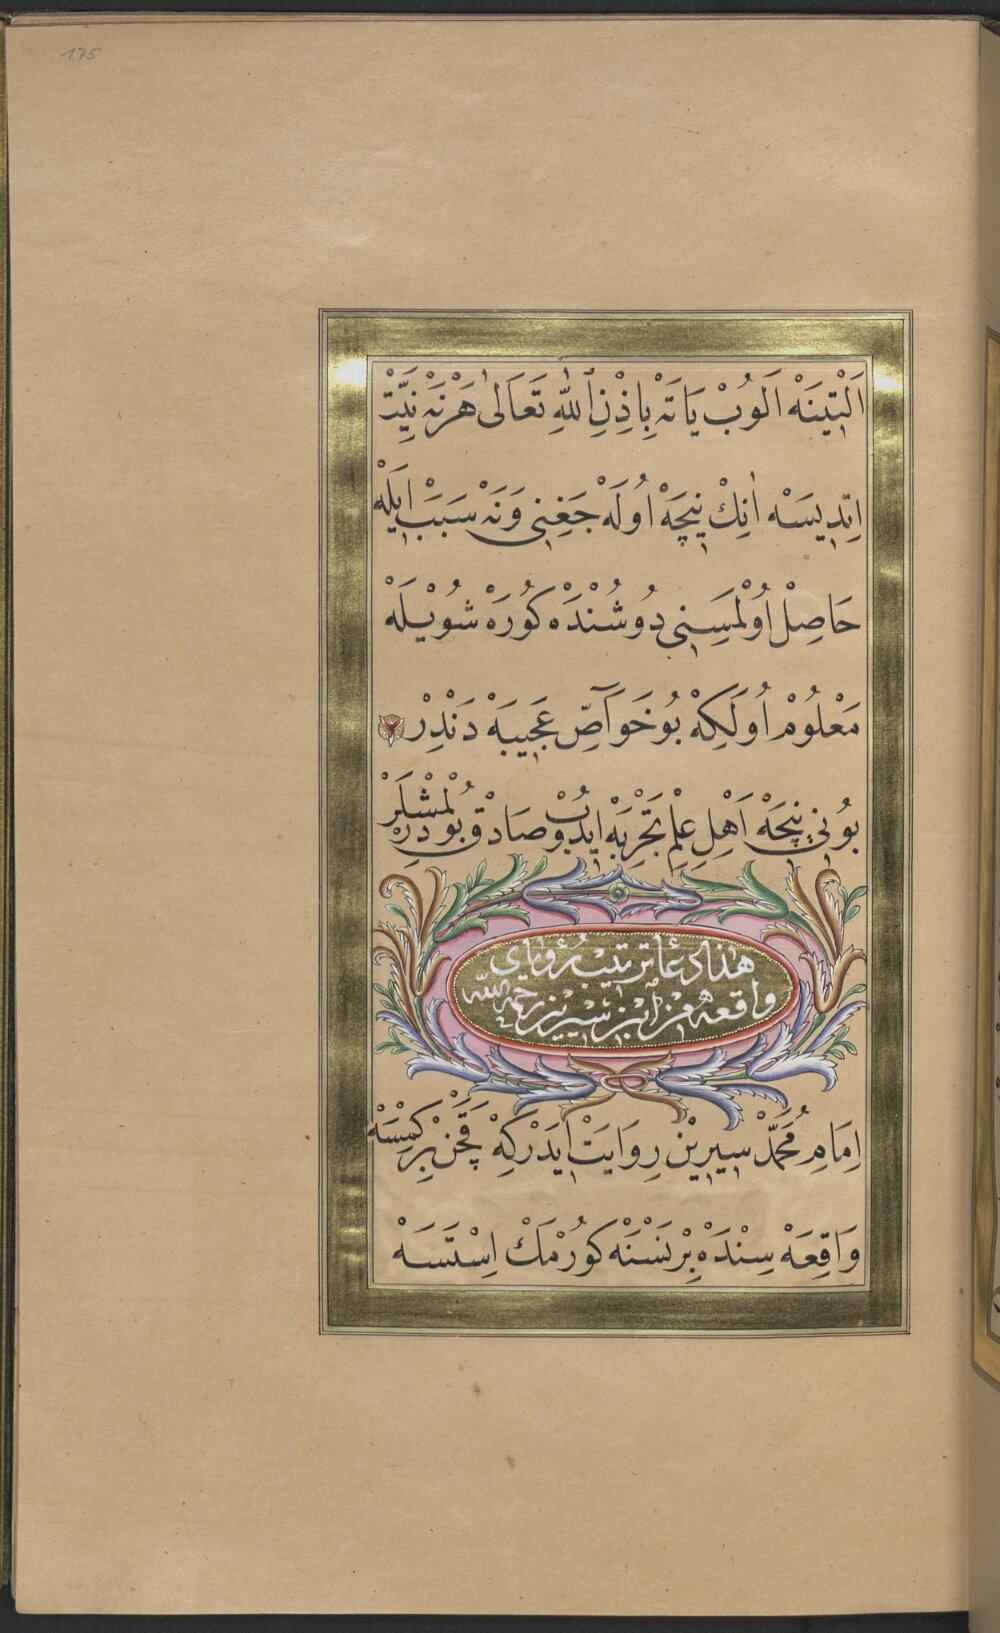 175
اَلْتِينَهْ اَلُوبْ يَاتَهْ بِاِذْنِ ٱللّٰهِ تَعَالٰى هَرْنَهْ نِيَّتْ
اِتدِيسَهْ اٰنِكْ نِيچَهْ اُولَهْ جَغِنِى وَنَهْ سَبَبْ اِيلَهْ
حَاصِلْ اُولْمَسِنِى دُوشُنْدَهْ كُورَهْ شُويْلَهْ
مَعْلُومْ اُولَكِهْ بُو خَوَآصِّ عَجِيبَهْ دَنْدِرْ
بُونِى نِيچَهْ اَهْلِ عِلْمْ تَجْرِبَهْ اِيدُبْ وصَادِقْ بُولْمُشْلَرْدِرْ
هٰذَا دُعَا تَرتِيبْ رُؤْيَاىِ
وَاقِعَه مِنْ اِبْنِ سِيرِينْ رَحْمَهُ اللّٰه
اِمَامِ مُحَمَّدْ سِيرِيْنْ رِوَايَتْ اِيدَرْكِهْ قَچَنْ بِرْ كِمْسَهْ
وَاقِعَهْ سِنْدَهْ بِرْ نَسْنَهْ كُورْمَكْ اِسْتَسَهْ